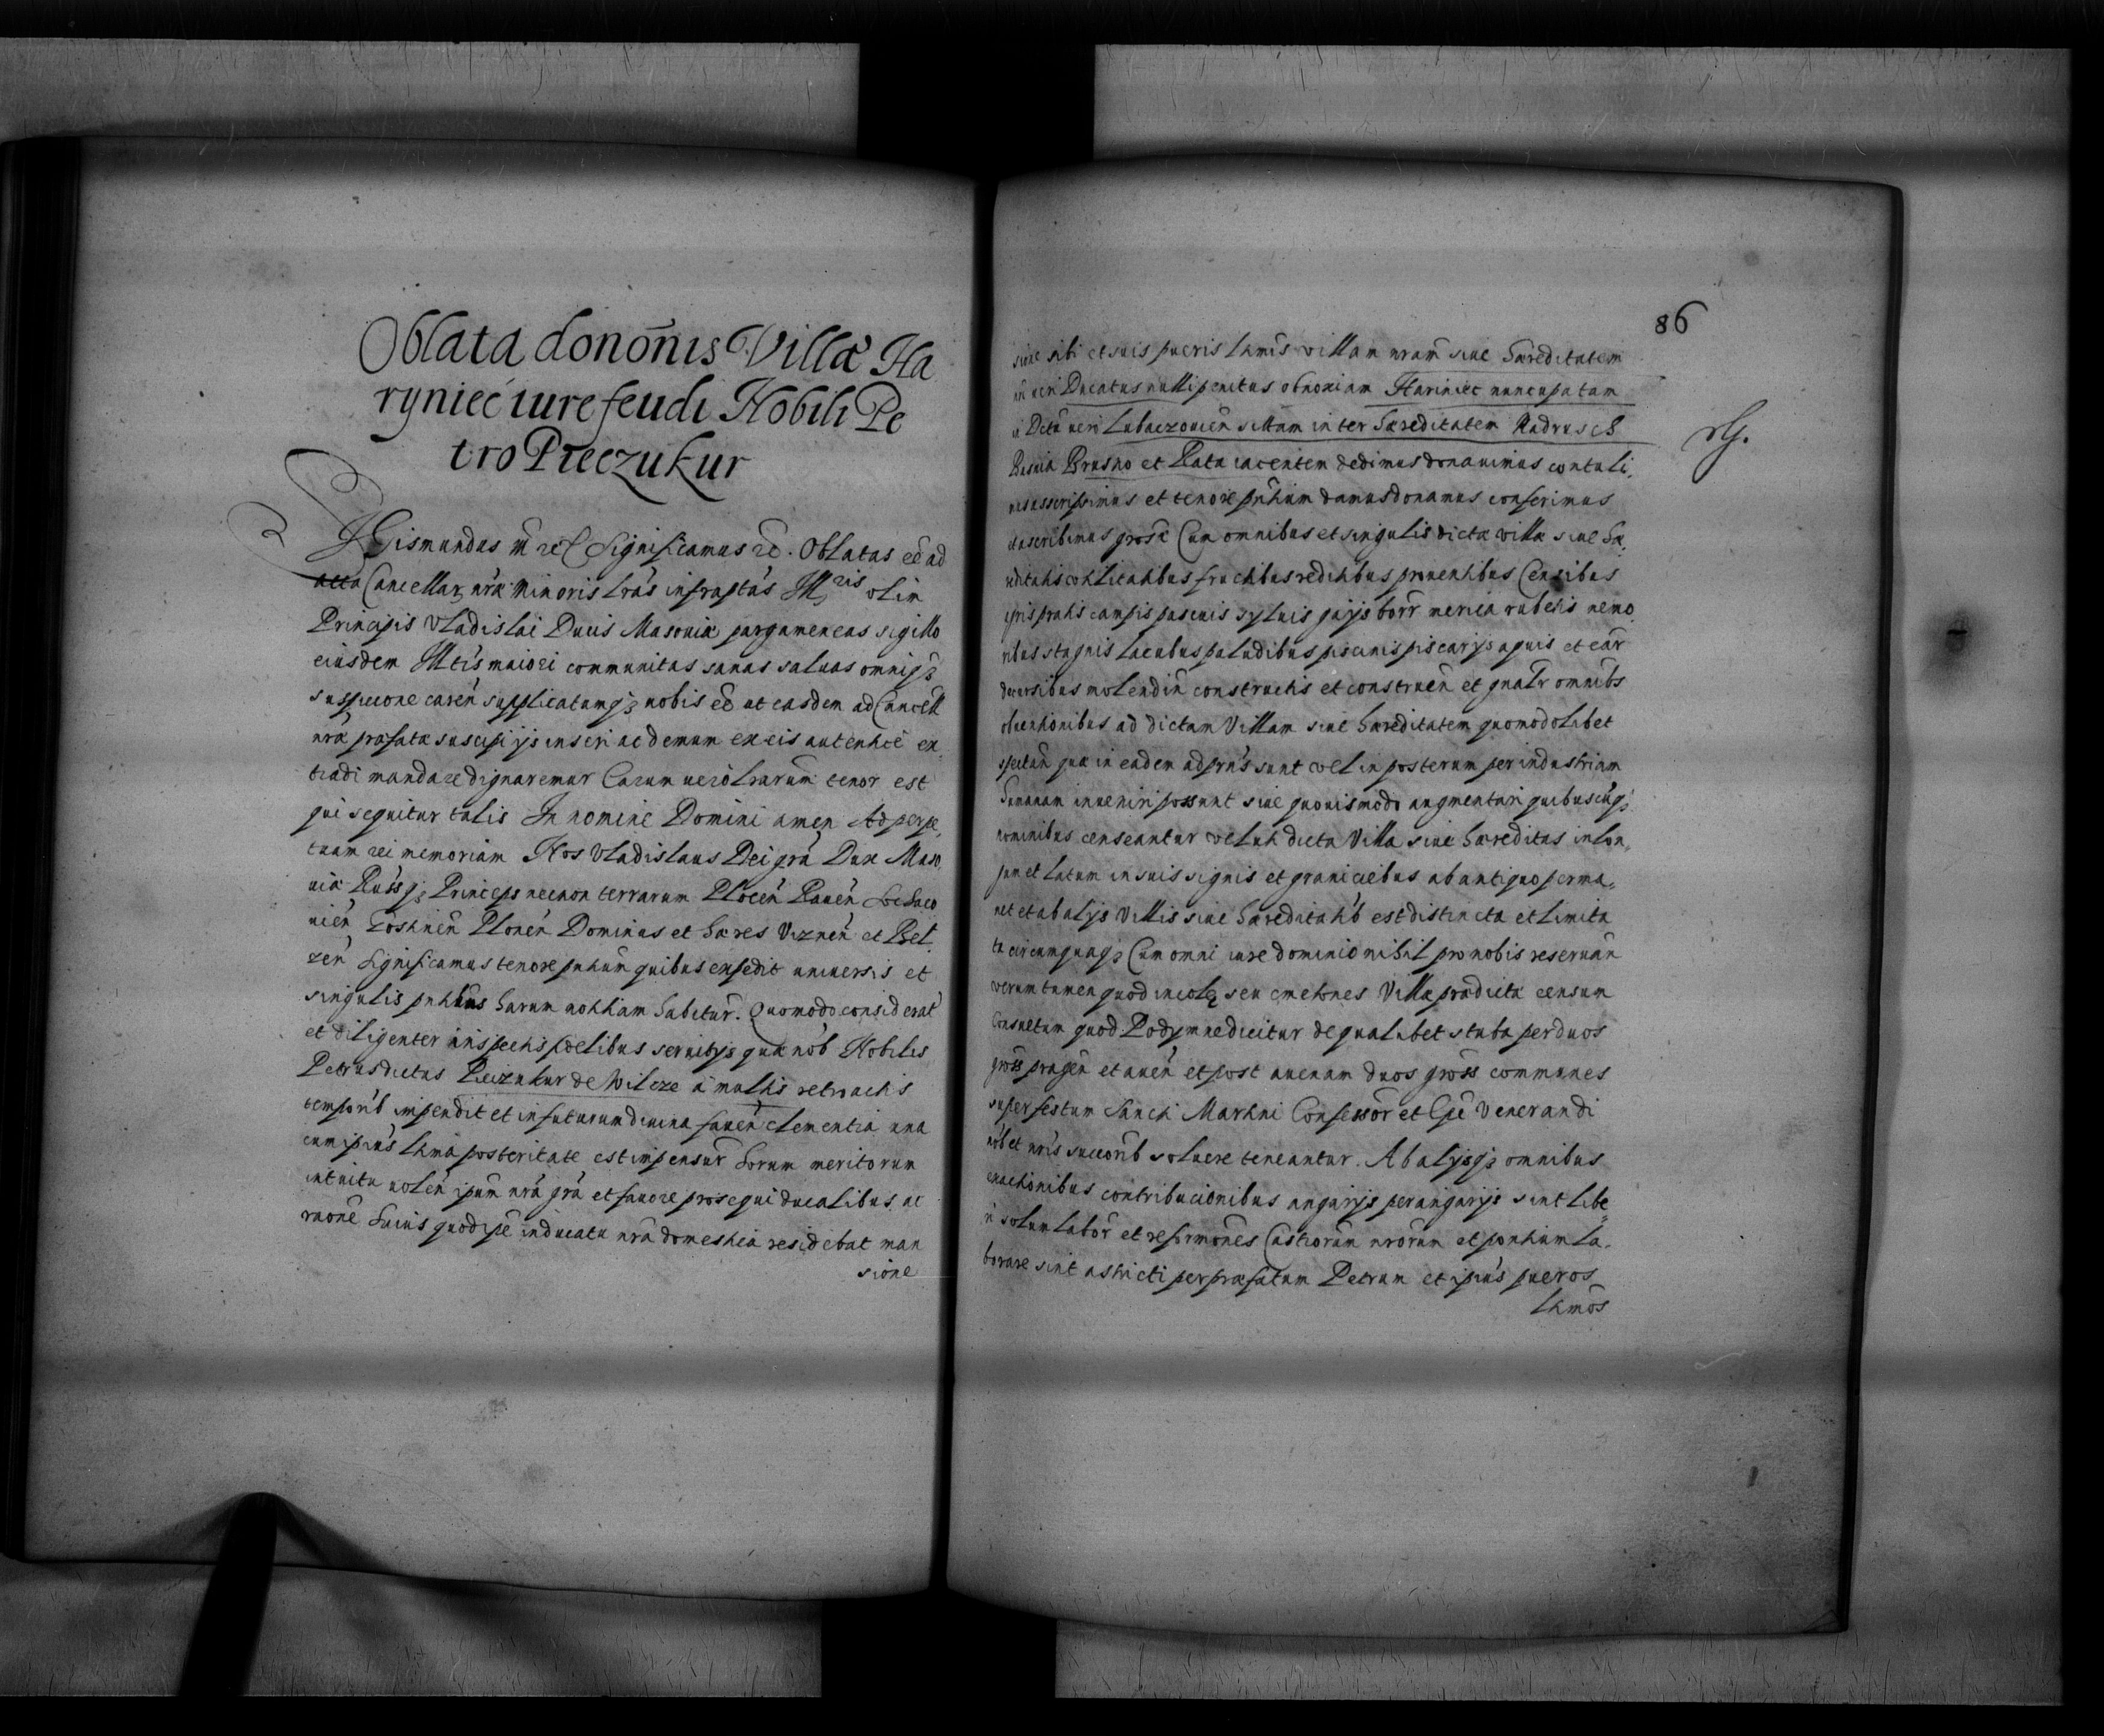 Oblata donōnis Villæ Ha
ryniec iure feudi Nobili Pe
tro Pieczukur
Sigismundus III rex Significamus rc. Oblatas eē ad
acta Cancellar, nrǽ Minoris lrás infraptás Illris olim
Principis Vladislai Ducis Masouiæ pargameneas sigillo
eiusdem Illtis maiori communitas sanas saluas omniqȝ
suspicione caren̄ supplicatumqȝ nobis eē ut easdem ad Cancell
nræ præfatæ suscipi ijs inseri ac demum ex eis autenticē ex,
tradi mandare dignaremur Earum uero lrarum tenor est
qui sequitur talis In nomine Domini amen Ad perpe,
tuam rei memoriam Nos Vladislaus Dei grá Dux Maso,
uiæ Russqȝ Princeps necnon terrarum Plocen̄ Rauen̄ Sochaco
uien̄ Gostinen̄ Plonen̄ Dominus et hæres Viznen̄ et Bel,
zen̄ Significamus tenore pntium quibus expedit uniuersis et
singulis pntibus harum notitiam habitur̄. Quomodo considerat̄
et diligenter inspectis fidelibus seruitijs quæ nob̄ Nobilis
Petrus dictus Pieczukur de Wilcze a multis retroactis
temporib̄ impendit et in futurum diuina fauen̄ clementia una
cum ipsiús ltimá posteritate est impensur̄ horum meritorum
intuitu uolen̄ ipsum nrá grá et fauore prosequi ducalibus, ac
raōne huius quod ipse in ducatu nrō domestica residebat man
sione
86
sione sibi et suis pueris ltimis villam nram siue hæreditatem
iuri Ducatus nulli penitus obnoxiam Hariniec nuncupatam
in Dctū ueri Lubaczouien̄ sitam inter hæreditatem Radrusch
Basnia Brusno et Rata iacentem dedimus donauimus contuli,
mus asscripsimus et tenore pntium damus donamus conferimus
et ascribimus prosē Cum omnibus et singulis dictæ villæ siue hæ,
reditatis vtilitatibus fructibus reditibus prouentibus Censibus
agris pratis campis pascuis syluis gaijs borr̄ mericis rubetis nemo,
ribus stagnis lacubus paludibus piscinis piscarijs aquis et ear̄
decursibus molendin̄ constructis et construen̄ et gnalr̄ omnibs
obuentionibus ad dictam Villam siue hæreditatem quomodolibet
spectan̄ quæ in eadem ad prns sunt vel in posterum per industriam
humanam inueniri possunt siue quouismodo augmentari quibuscuqȝ
nominibus censeantur velut dicta Villa siue hæreditas in lon,
gum et latum in suis signis et graniciebus ab antiquo perma,
net et ab alijs Villis siue hæreditatib̄ est distincta et limita
ta circumquaqȝ Cum omni iure dominio nihil pro nobis reseruan̄
verumtamen quod incolæ seu cmetones Villæ prædictæ censum
consuetum quod Podymne dicitur de qualibet stuba per duos
gross pragen̄ et auen̄ et post auenam duos gross communes
super festum Sancti Martini Confessor̄ et Epi Venerandi
nob̄ et nris successorib̄ soluere teneantur. Ab alijsqȝ omnibus
exactionibus contribucionibus angarijs perangarijs sint libe,
ri solum labor̄ et reformōnes Castrorum nrorum et pontium la,
borare sint astricti per præfatum Petrum et ipsiús pueros
ltimōs